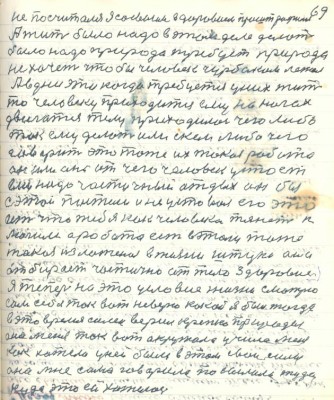 69
не посчитался я совсем здоровием пострадал
А жит было надо в этом деле делат
было надо природа требует природа
не хочет чтобы человек чурбаком лежал
А в дни эти когда требуется у них жит
то человеку приходится ему на ногах
двигатся тому приходится чего либо
так ему делат или с кем либо чего
говорит это тоже их такая работа
он или она от чего человек устает
ему надо частичный отдых он бы
с этой питом и не устовал его это
ест что тебя как человека тянет к
земле а работа ест в том тоже
такая изложена в жизни штука она
отбирает частично от тела здоровие
Я теперь на это условия жизни смотрю
сам себя так вот неверно какой я был тогда
в это время самая верна крепко природа
она меня так вот окружала учила меня
как хотела у ней были в этом свои силы
она мне сама говорила посылала туда
куда это ей хотелос